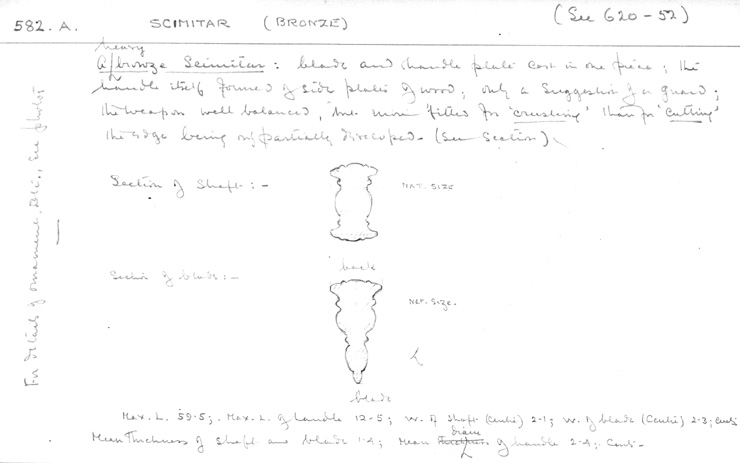 582. A. SCIMITAR (BRONZE) (See 620-52)
heavy
A bronze Scimitar: blade and handle plate cast in one piece; the
handle itself formed of side plates of wood; only a suggestion of a guard;
the weapon well balanced, but more fitted for 'crushing' than for 'cutting'
the edge being only partially developed. (See Section).
Section of Shaft:-
NAT. SIZE
back
Section of blade:-
NAT. SIZE.
blade
Max. L. 59.5; Max. L. of handle 12.5; W. of shaft (Centre) 2.1; W. of blade (Centre) 2.3; cent.
diam
Mean Thickness of shaft and blade 1.4; Mean of handle 2.4; Cent.
For details of ornament, etc., see photos